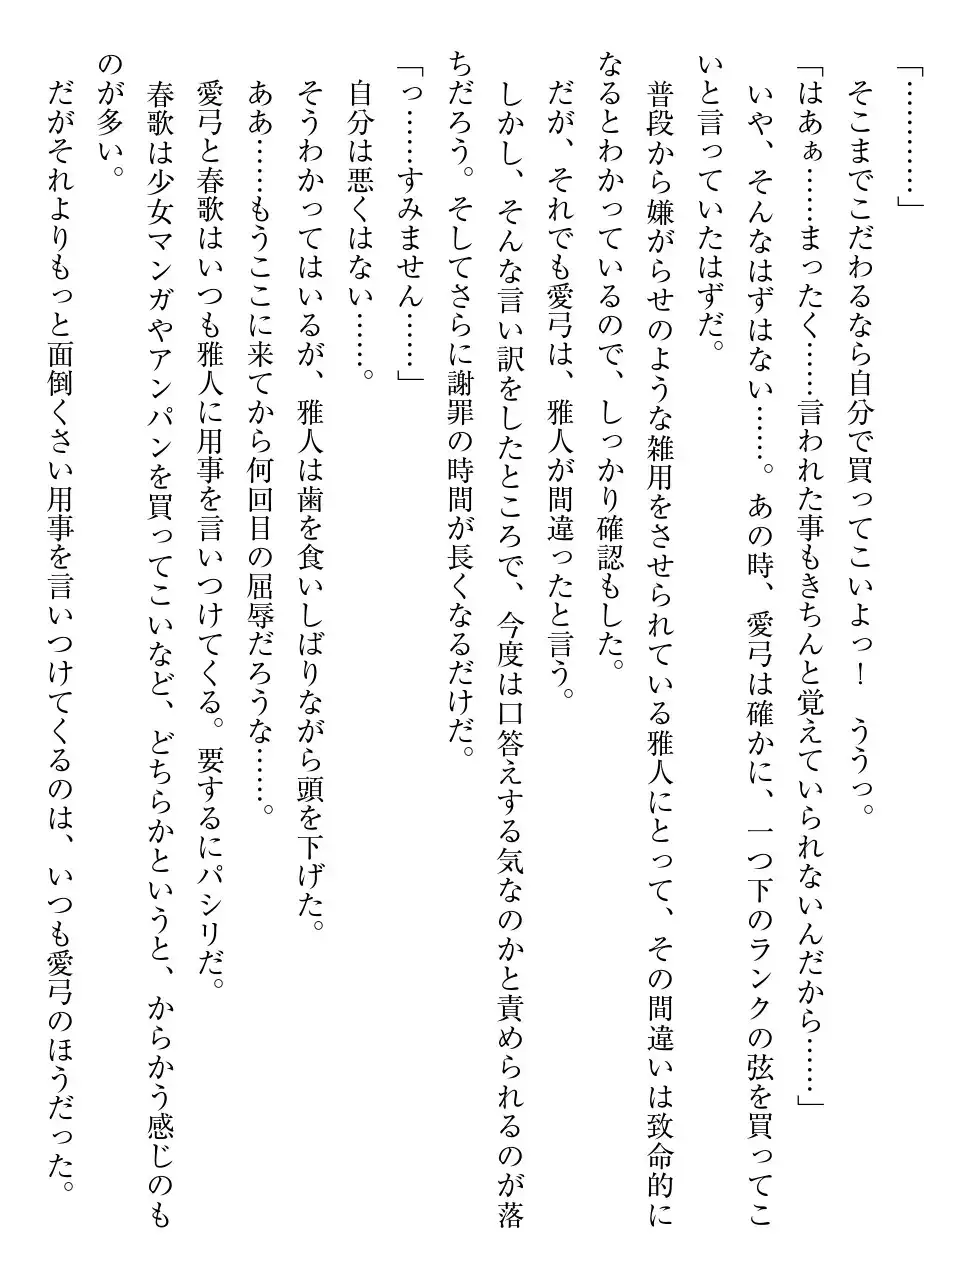 「…………」
そこまでこだわるなら自分で買ってこいよっ！　ううっ。
「はあぁ……まったく……言われた事もきちんと覚えていられないんだから……」
いや、そんなはずはない……。あの時、愛弓は確かに、一つ下のランクの弦を買ってこ
いと言っていたはずだ。
普段から嫌がらせのような雑用をさせられている雅人にとって、その間違いは致命的に
なるとわかっているので、しっかり確認もした。
だが、それでも愛弓は、雅人が間違ったと言う。
しかし、そんな言い訳をしたところで、今度は口答えする気なのかと責められるのが落
ちだろう。そしてさらに謝罪の時間が長くなるだけだ。
「っ……すみません……」
自分は悪くはない……。
そうわかってはいるが、雅人は歯を食いしばりながら頭を下げた。
ああ……もうここに来てから何回目の屈辱だろうな……。
愛弓と春歌はいつも雅人に用事を言いつけてくる。要するにパシリだ。
春歌は少女マンガやアンパンを買ってこいなど、どちらかというと、からかう感じのも
のが多い。
だがそれよりもっと面倒くさい用事を言いつけてくるのは、いつも愛弓のほうだった。